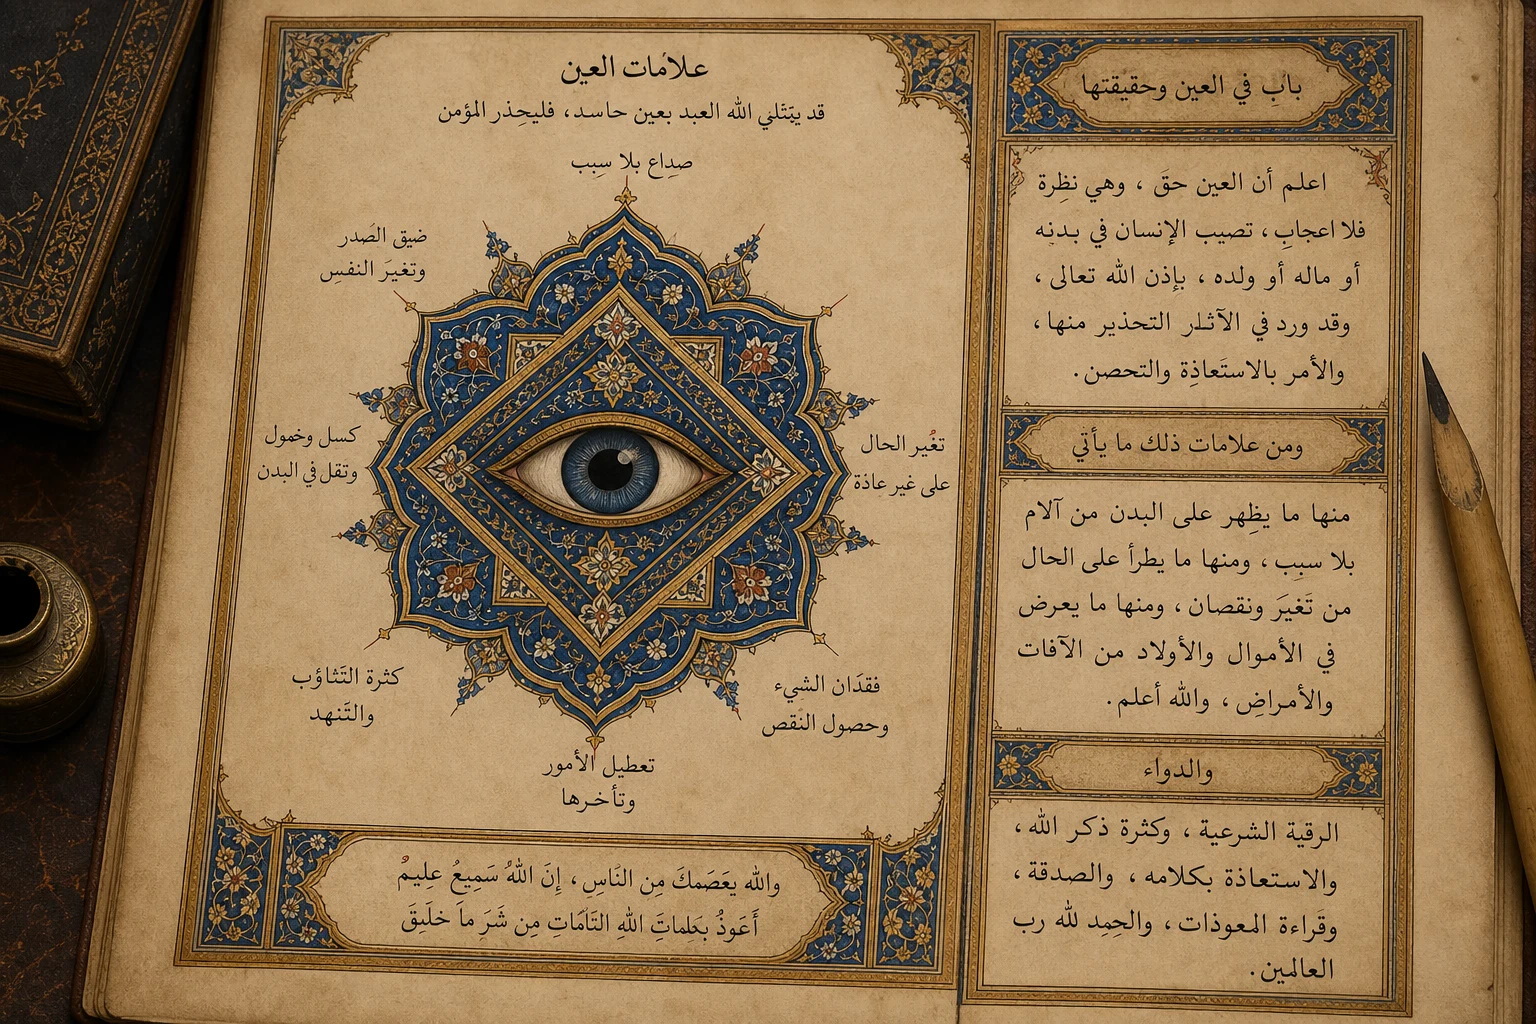 علامات العين
قد يبتلي الله العبد بعين حاسد، فليحذر المؤمن
صداع بلا سبب
ضيق الصدر
وتغير النفس
كسل وخمول
وتقل في البدن
تغير الحال
على غير عاذة
كثرة التثاؤب
والتنهد
فقدان الشيء
وحصول النقص
تعطيل الأمور
وتأخرها
والله يعصمك من الناس، إن الله سميع عليم
أعوذ بكلمات الله التامات من شر ما خلق
باب في العين وحقيقتها
اعلم أن العين حق، وهي نظرة
فلا اعجاب، تصيب الإنسان في بدنه
أو ماله أو ولده، بإذن الله تعالى،
وقد ورد في الآثار التحذير منها،
والأمر بالاستعاذة والتحصن.
ومن علامات ذلك ما يأتي
منها ما يظهر على البدن من آلام
بلا سبب، ومنها ما يطرأ على الحال
من تغير ونقصان، ومنها ما يعرض
في الأموال والأولاد من الآفات
والأمراض، والله أعلم.
والدواء
الرقية الشرعية، وكثرة ذكر الله،
والاستعاذة بكلامه، والصدقة،
وقراءة المعوذات، والحمد لله رب
العالمين.